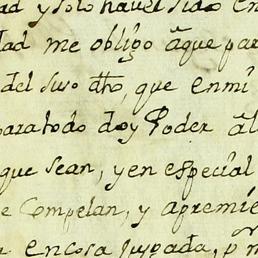 ad y solo haver sido en
dad me obligo aque par
del suso dho, que enmi
paratodo doy Poder al
que sean, y en especial
e Compelan, y apremie
encosa juzgada, p